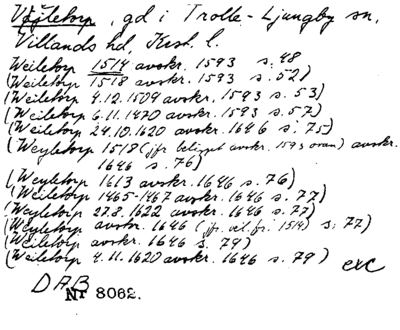 Väjletorp, gd i Trolle-Ljungby sn,
Villands hd, Krist. l.
Weiletorp 1514 avskr. 1593 s. 48
(Weiletorp 1518 avskr. 1593 s. 52)
(Weiletorp 4.12.1509 avskr. 1593 s. 53)
(Weiletorp 6.11.1470 avskr. 1593 s. 57)
(Weiletorp 24.10.1620 avskr. 1646 s. 75)
(Weyletorp 1518 (jfr avskr. 1593 ovan) avskr.
1646 s. 76)
(Weyletorp 1613 avskr. 1646 s. 76)
(Weiletorp 1465-1467 avskr. 1646 s. 77)
(Weyletorp 27.8.1622 avskr. 1646 s. 77)
(Weyletorp avskr. 1646 (jfr 1514) s. 77)
(Weiletorp avskr. 1646 s. 79)
(Weiletorp 4.11.1620 avskr. 1646 s. 79) exc
DAB
Nr 8062.